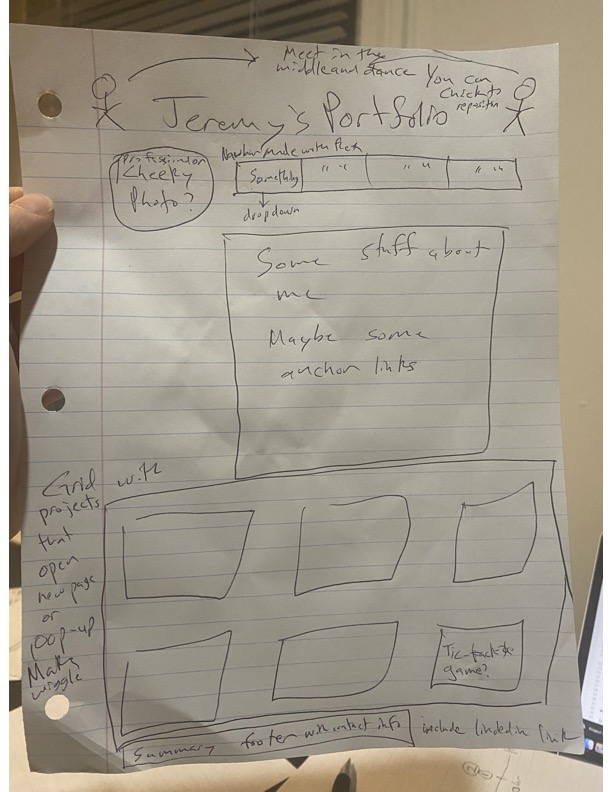 Meet in the
middle and dance
You can
click to
reposition
Jeremy's Portfolio
Navbar made with flex
Something
" "
" "
" "
dropdown
professional or
Cheeky
Photo?
Some stuff about
me
Maybe some
anchor links
Grid with
projects
that
open
new page
or
pop-up
Make
wiggle
Tic-tack-toe
game?
Summary footer with contact info
include linkedin link